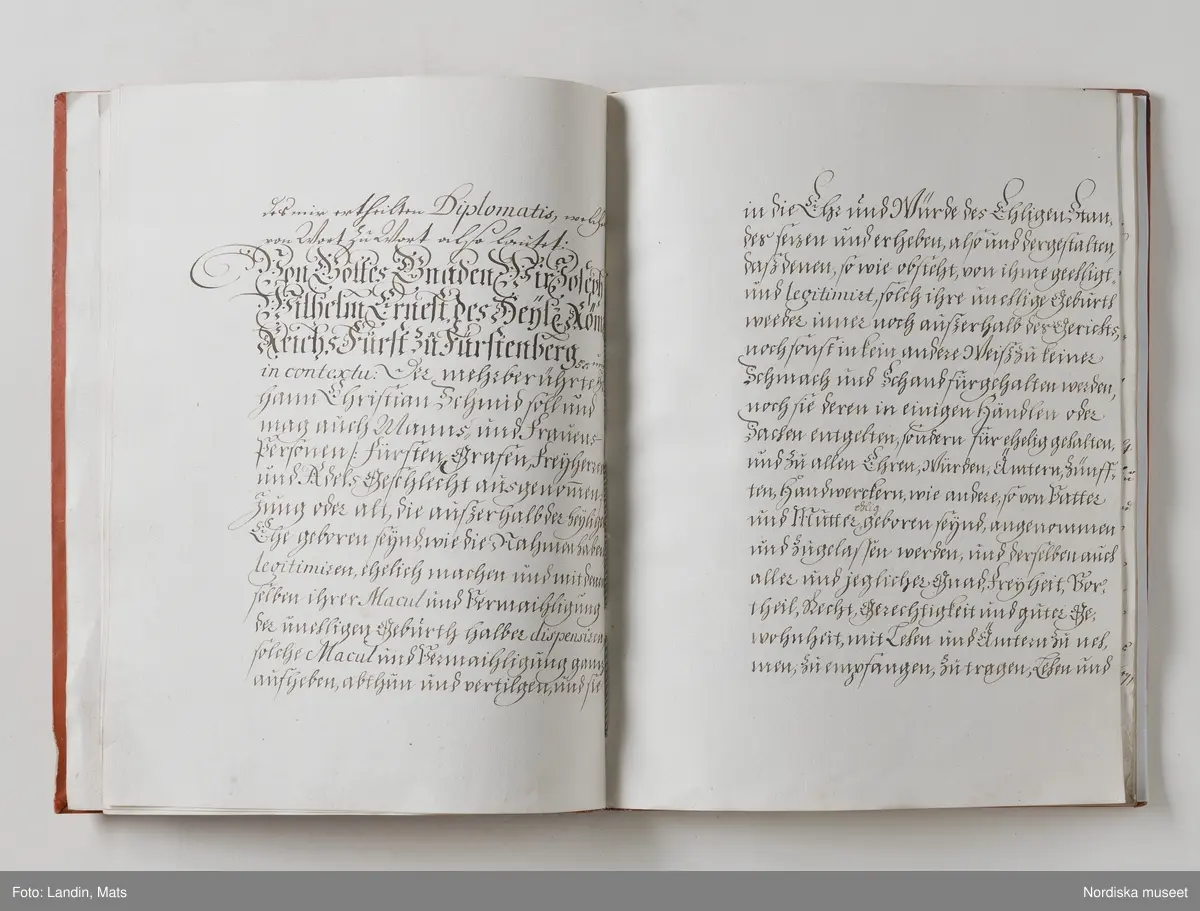 des mir ertheilten Diplomatis, welche
von Wort zu Wort also lautet:
Von Gottes Gnaden Wir Joseph
Wilhelm Ernest, des Heyl: Röm:
Reichs Fürst zu Fürstenberg
in contextu: Der mehrberührte
hann Christian Schmid soll und
mag auch Manns- und Frauens-
Persohnen /: Fürsten, Grafen, Freyherren
und Adels Geschlecht ausgenom̅en :/
Jung oder alt, die außerhalb der heyligen
Ehe geboren seynd, wie die Nahmen haben
legitimiren, ehelich machen und mit den
selben ihrer Macul und Vermaihligung
der unelligen Gebürth halber dispensiren
solche Macul und Vermaihligung gantz
aufheben, abthun und vertilgen, und sie
in die Ehr und Würde des Ehligen Stan-
des sezen und erheben, also und dergestalten,
daß denen, so wie obsteht, von ihme geelligt
und legitimirt, solch ihre unellige Gebürth
weeder inner noch außerhalb des Gerichts,
noch sonst in kein andere Weiß zu keiner
Schmach und Schand fürgehalten werden,
noch sie deren in einigen Händlen oder
Sachen entgelten, sondern für ehelig gehalten,
und zu allen Ehren, Würden, Ämtern, Zünff-
ten, Handwerckern, wie andere, so von Vatter
und Mutter ehlig geboren seynd, angenommen
und zugelassen werden, und derselben auch
aller und jeglicher Gnad, Freyheit, Vor-
theil, Recht, Gerechtigkeit und guter Ge-
wohnheit, mit Lehen und Ämtern zu neh-
men, zu empfangen, zu tragen, Lehen und
Foto: Landin, Mats
Nordiska museet